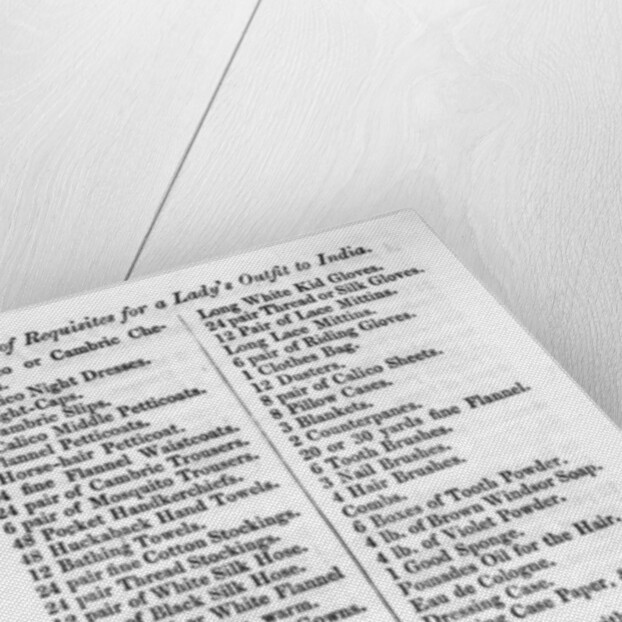 of Requisites for a Lady's Outfit to India.
or Cambric Che-
Night Dresses.
Caps.
Slips.
Calico Middle Petticoats.
Flannel Petticoats.
Horse-hair Petticoat.
fine Flannel Waistcoats.
pair of Cambric Trousers.
6 pair of Mosquito Trousers.
48 Pocket Handkerchiefs.
18 Huckaback Hand Towels.
12 Bathing Towels.
24 pair fine Cotton Stockings.
24 pair Thread Stockings.
pair of White Silk Hose.
of Black Silk Hose.
White Flannel
warm.
Gowns.
Long White Kid Gloves.
24 pair Thread or Silk Gloves.
12 Pair of Lace Mittins.
Long Lace Mittins.
6 pair of Riding Gloves.
1 Clothes Bag.
12 Dusters.
8 pair of Calico Sheets.
8 Pillow Cases.
3 Blankets.
2 Counterpanes.
20 or 30 yards fine Flannel.
6 Tooth Brushes.
3 Nail Brushes.
4 Hair Brushes.
Combs.
6 Boxes of Tooth Powder.
4 lb. of Brown Windsor Soap.
4 lb. of Violet Powder.
1 Good Sponge.
Pomades Oil for the Hair.
Eau de Cologne.
Dressing Case.
Case Paper,